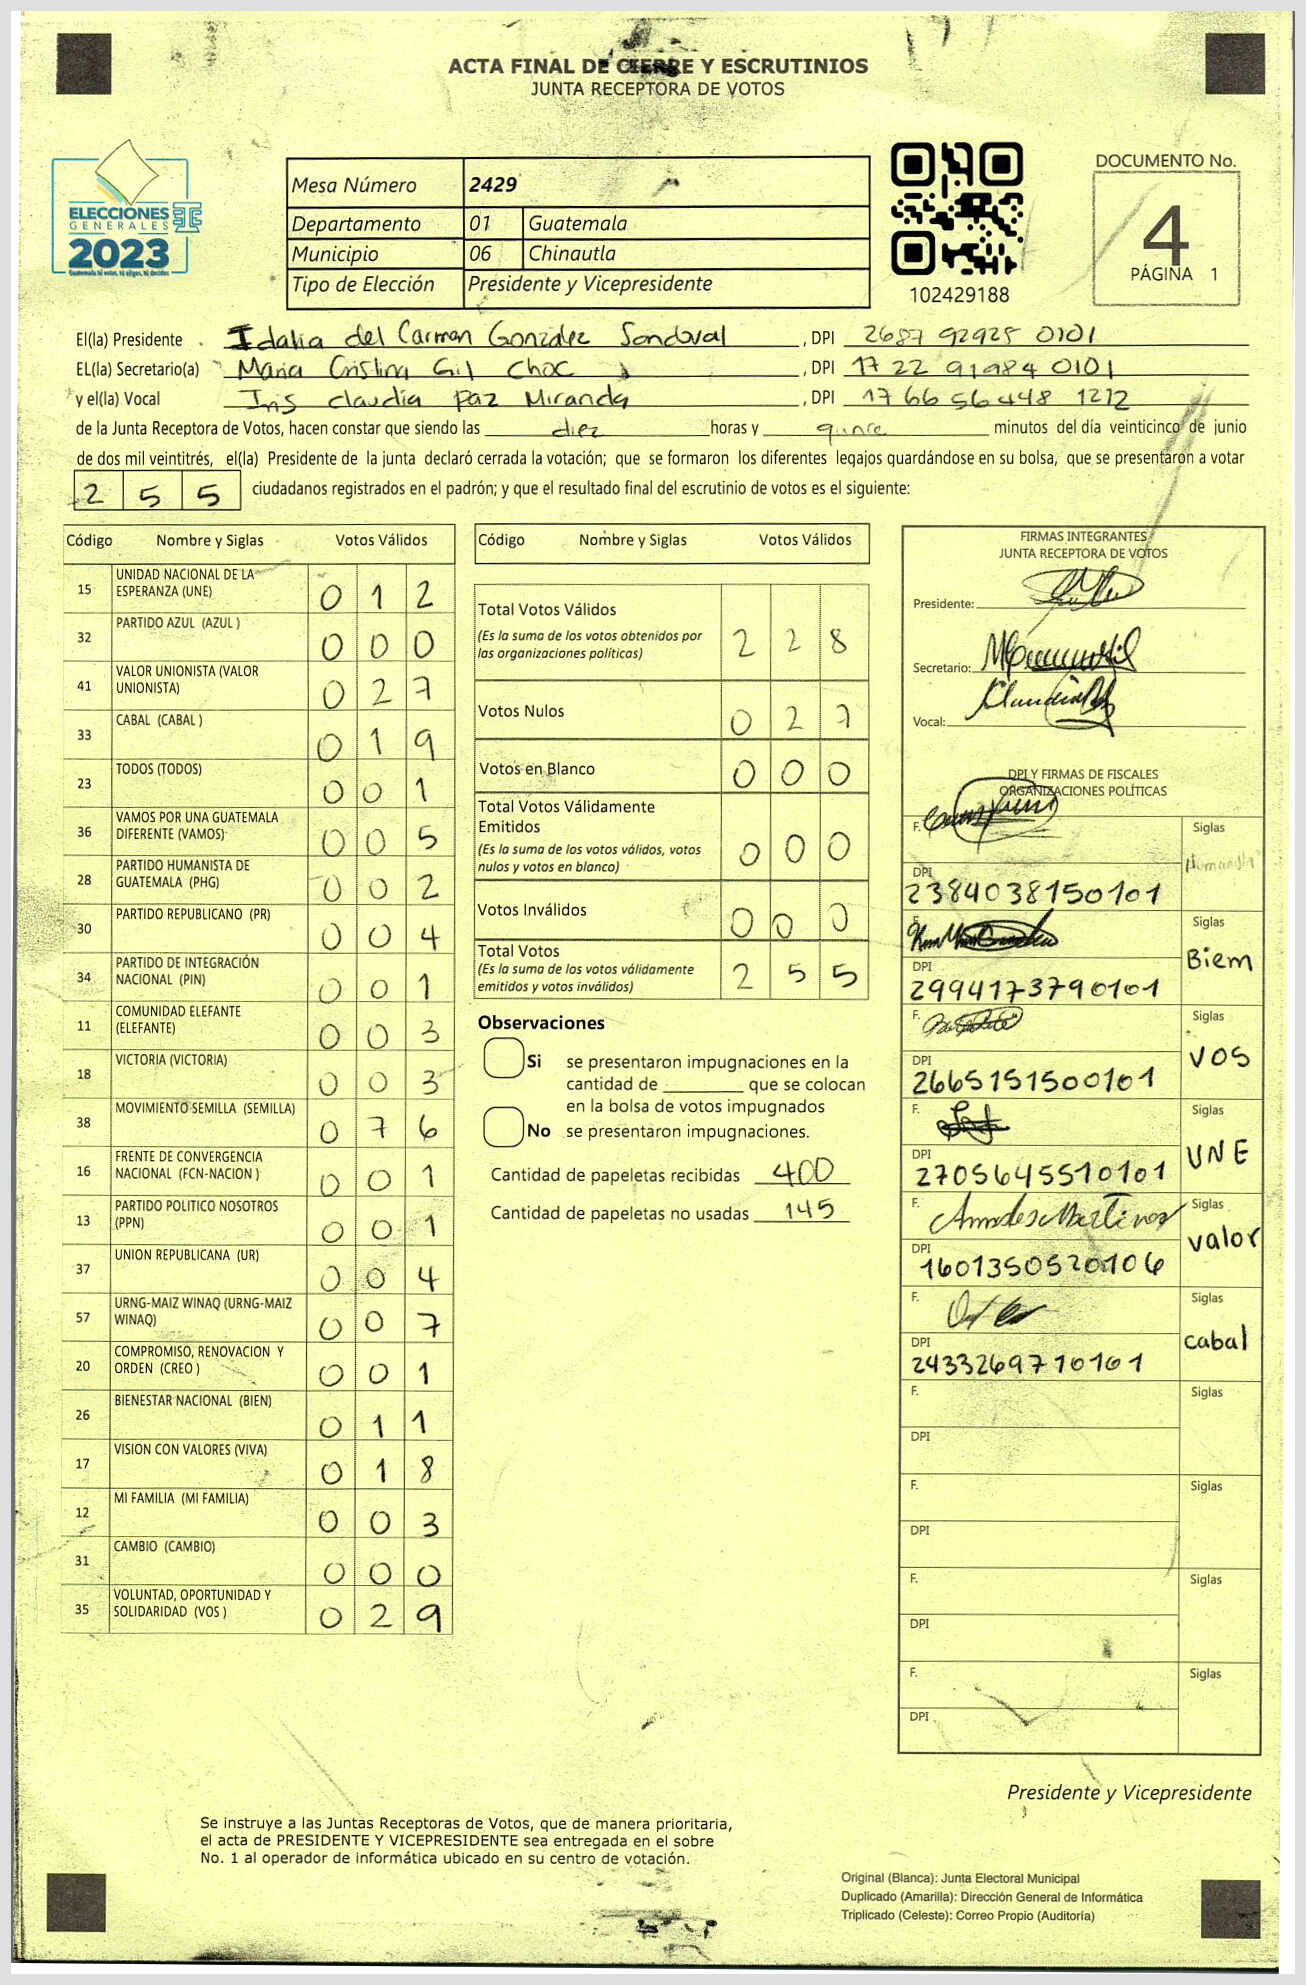 ACTA FINAL DE CIERRE Y ESCRUTINIOS
JUNTA RECEPTORA DE VOTOS
ELECCIONES
GENERALES
2023
Guatemala tú votas, tú eliges, tú decides
Mesa Número 2429
Departamento 01 Guatemala
Municipio 06 Chinautla
Tipo de Elección Presidente y Vicepresidente
102429188
DOCUMENTO No.
4
PÁGINA 1
El(la) Presidente Idalia del Carmen González Sandoval , DPI 2687 92925 0101
EL(la) Secretario(a) Maria Cristina Gil Choc , DPI 1722 91984 0101
y el(la) Vocal Iris claudia Paz Miranda , DPI 1766 56448 1212
de la Junta Receptora de Votos, hacen constar que siendo las diez horas y quince minutos del día veinticinco de junio
de dos mil veintitrés, el(la) Presidente de la junta declaró cerrada la votación; que se formaron los diferentes legajos guardándose en su bolsa, que se presentaron a votar
255 ciudadanos registrados en el padrón; y que el resultado final del escrutinio de votos es el siguiente:
Código Nombre y Siglas Votos Válidos
15 UNIDAD NACIONAL DE LA ESPERANZA (UNE) 012
32 PARTIDO AZUL (AZUL ) 000
41 VALOR UNIONISTA (VALOR UNIONISTA) 027
33 CABAL (CABAL ) 019
23 TODOS (TODOS) 001
36 VAMOS POR UNA GUATEMALA DIFERENTE (VAMOS) 005
28 PARTIDO HUMANISTA DE GUATEMALA (PHG) 002
30 PARTIDO REPUBLICANO (PR) 004
34 PARTIDO DE INTEGRACIÓN NACIONAL (PIN) 001
11 COMUNIDAD ELEFANTE (ELEFANTE) 003
18 VICTORIA (VICTORIA) 003
38 MOVIMIENTO SEMILLA (SEMILLA) 076
16 FRENTE DE CONVERGENCIA NACIONAL (FCN-NACION ) 001
13 PARTIDO POLITICO NOSOTROS (PPN) 001
37 UNION REPUBLICANA (UR) 004
57 URNG-MAIZ WINAQ (URNG-MAIZ WINAQ) 007
20 COMPROMISO, RENOVACION Y ORDEN (CREO ) 001
26 BIENESTAR NACIONAL (BIEN) 011
17 VISION CON VALORES (VIVA) 018
12 MI FAMILIA (MI FAMILIA) 003
31 CAMBIO (CAMBIO) 000
35 VOLUNTAD, OPORTUNIDAD Y SOLIDARIDAD (VOS ) 029
Código Nombre y Siglas Votos Válidos
Total Votos Válidos
(Es la suma de los votos obtenidos por las organizaciones políticas) 228
Votos Nulos 027
Votos en Blanco 000
Total Votos Válidamente Emitidos
(Es la suma de los votos válidos, votos nulos y votos en blanco) 000
Votos Inválidos 000
Total Votos
(Es la suma de los votos válidamente emitidos y votos inválidos) 255
Observaciones
Si se presentaron impugnaciones en la
cantidad de ________ que se colocan
en la bolsa de votos impugnados
No se presentaron impugnaciones.
Cantidad de papeletas recibidas 400
Cantidad de papeletas no usadas 145
FIRMAS INTEGRANTES
JUNTA RECEPTORA DE VOTOS
Presidente:
Secretario:
Vocal:
DPI Y FIRMAS DE FISCALES
ORGANIZACIONES POLÍTICAS
F. Siglas Humanista
DPI 2384038150101
F. Siglas Biem
DPI 2994173790101
F. Siglas VOS
DPI 2665151500101
F. Siglas UNE
DPI 2705645510101
F. Siglas valor
DPI 1601350520106
F. Siglas cabal
DPI 2433269710101
F. Siglas
DPI
F. Siglas
DPI
F. Siglas
DPI
F. Siglas
DPI
Presidente y Vicepresidente
Se instruye a las Juntas Receptoras de Votos, que de manera prioritaria,
el acta de PRESIDENTE Y VICEPRESIDENTE sea entregada en el sobre
No. 1 al operador de informática ubicado en su centro de votación.
Original (Blanca): Junta Electoral Municipal
Duplicado (Amarilla): Dirección General de Informática
Triplicado (Celeste): Correo Propio (Auditoría)